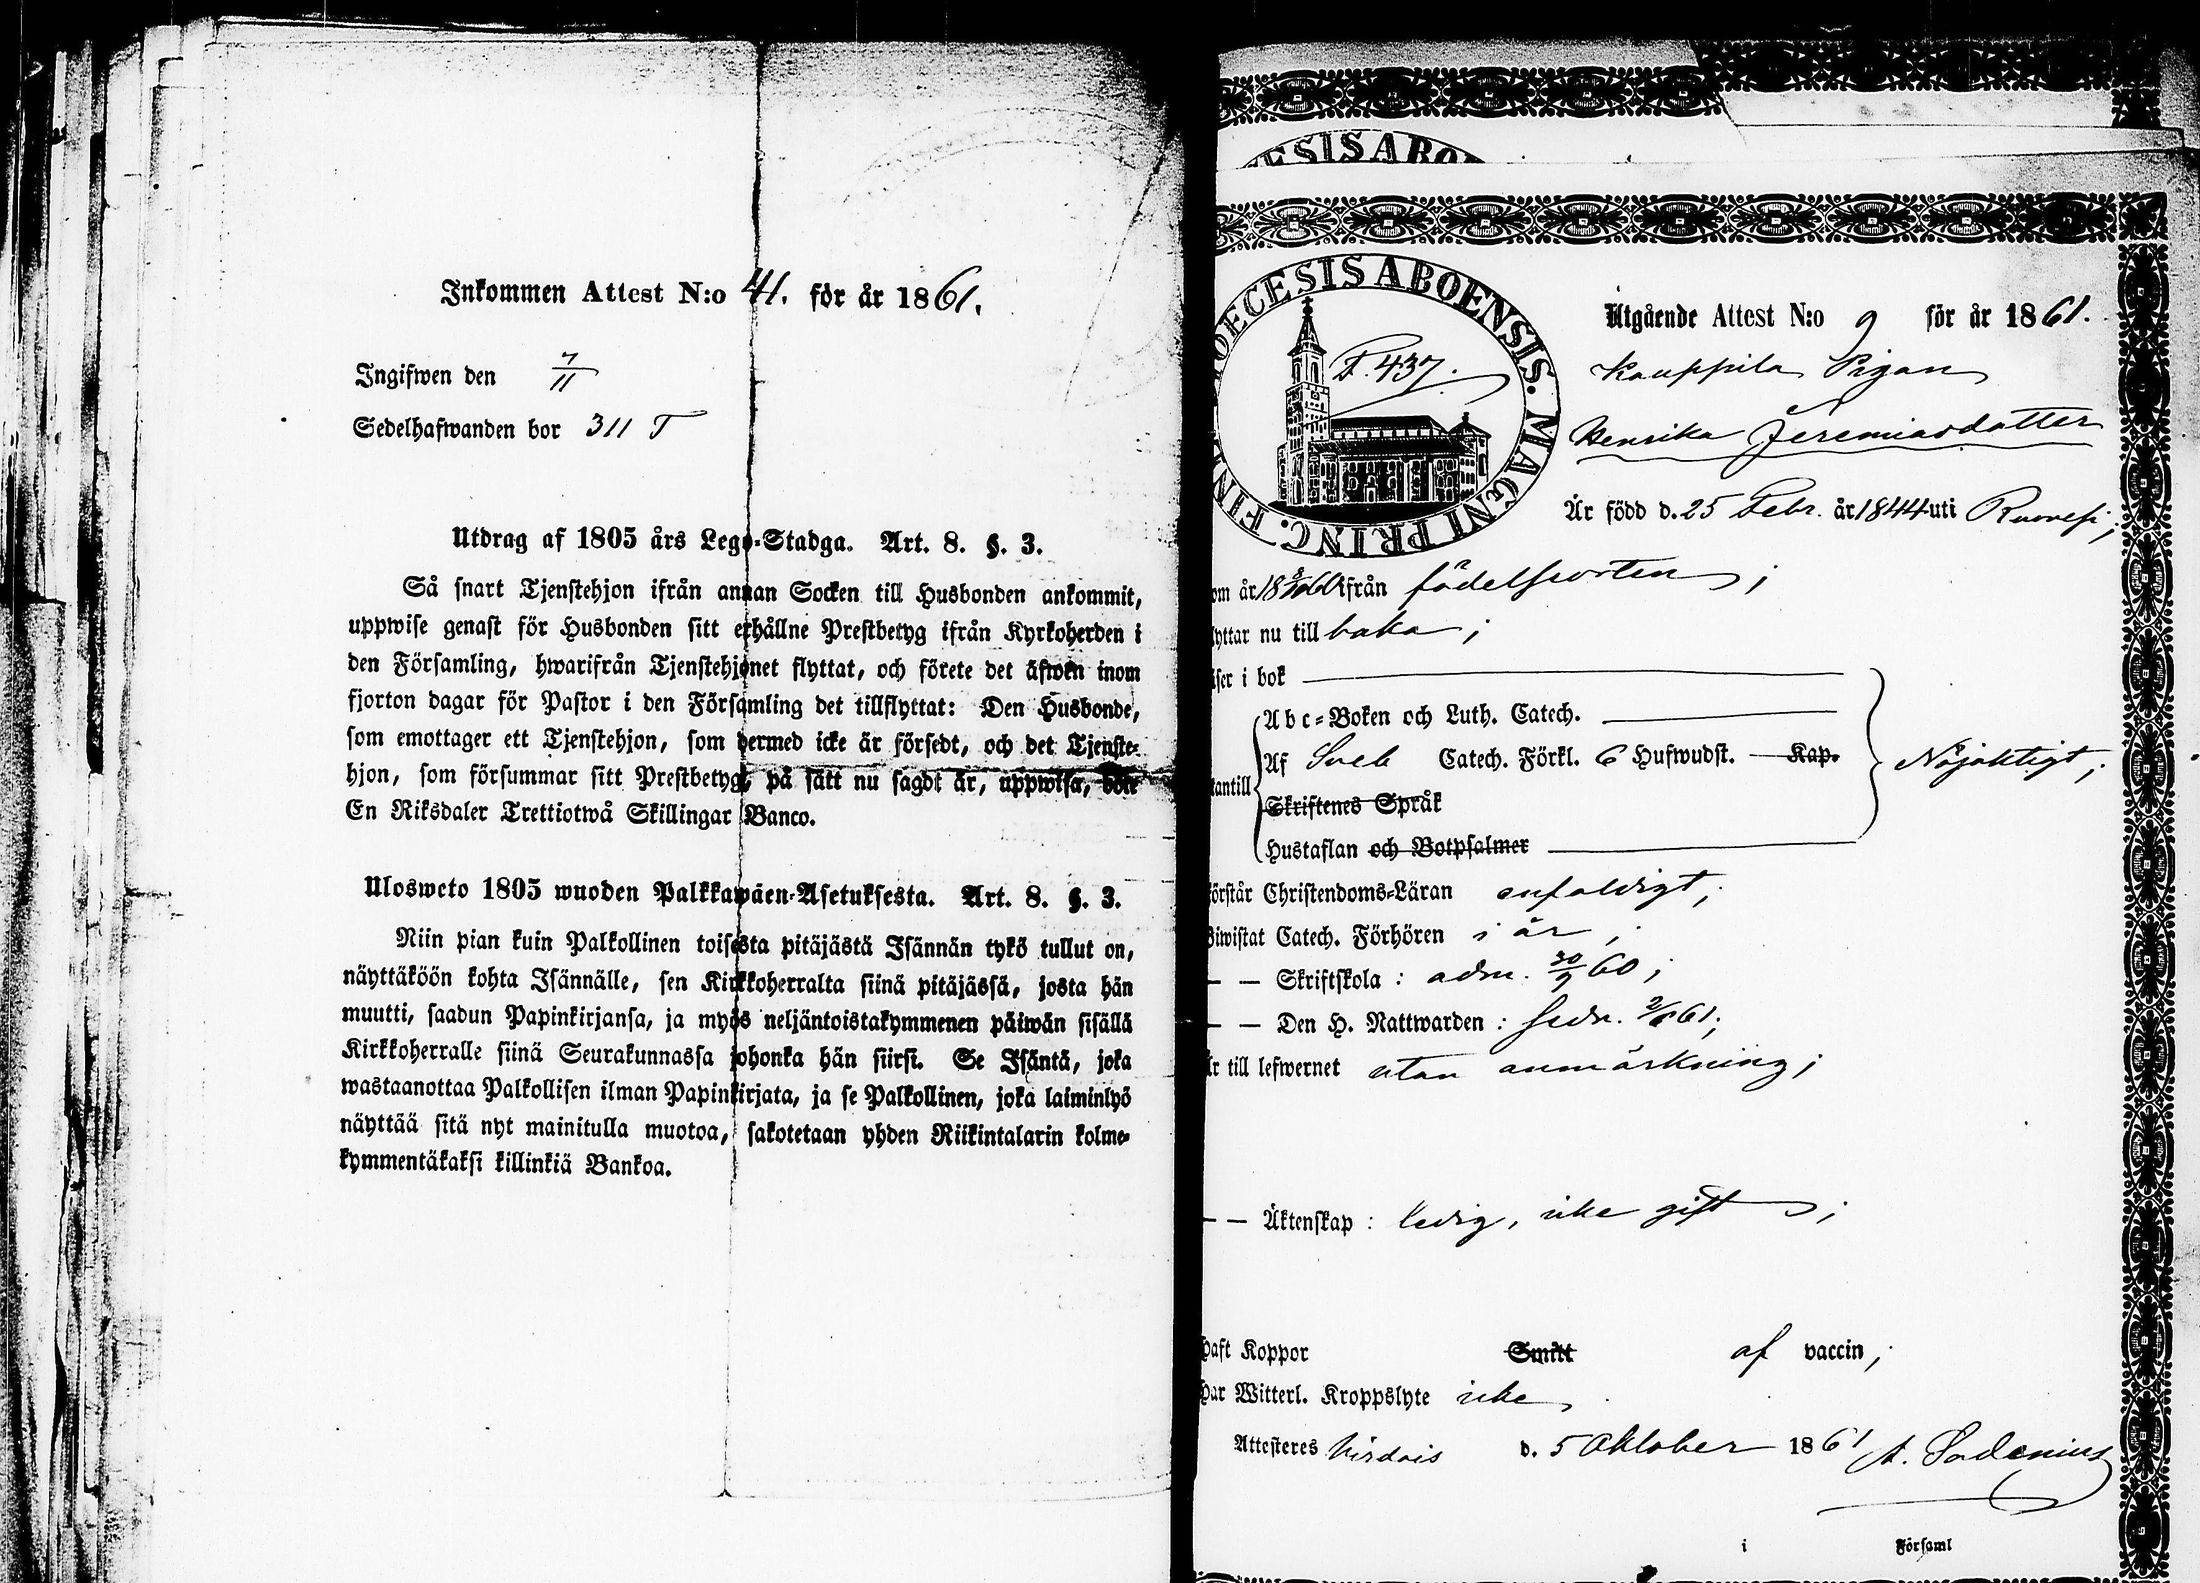 Inkommen Attest N:o 41. för år 1861.
Ingifwen den 7/11
Sedelhafwanden bor 311 T
Utdrag af 1805 års Lego-Stadga. Art. 8. §. 3.
Så snart Tjenstehjon ifrån annan Socken till Husbonden ankommit,
uppwise genast för Husbonden sitt erhållne Prestbetyg ifrån Kyrkoherden i
den Församling, hwarifrån Tjenstehjonet flyttat, och förete det äfwen inom
fjorton dagar för Pastor i den Församling det tillflyttat: Den Husbonde,
som emottager ett Tjenstehjon, som dermed icke är försedt, och det Tjenste-
hjon, som försummar sitt Prestbetyg, på sätt nu sagdt är, uppwisa, böte
En Riksdaler Trettiotwå Skillingar Banco.
Ulosweto 1805 wuoden Palkkawäen-Asetuksesta. Art. 8. §. 3.
Niin pian kuin Palkollinen toisesta pitäjästä Isännän tykö tullut on,
näyttäköön kohta Isännälle, sen Kirkkoherralta siinä pitäjässä, josta hän
muutti, saadun Papinkirjansa, ja myös neljäntoistakymmenen päiwän sisällä
Kirkkoherralle siinä Seurakunnassa johonka hän siirsi. Se Isäntä, joka
wastaanottaa Palkollisen ilman Papinkirjata, ja se Palkollinen, joka laiminlyö
näyttää sitä nyt mainitulla muotoa, sakotetaan yhden Riikintalarin kolme-
kymmentäkaksi killinkiä Bankoa.
ESIS ABO
OECESIS ABOENSIS. MAGNI PRINC. FIN
F. 437.
Utgående Attest N:o 9 för år 1861.
Kauppila Pigan
Henrika Jeremiasdotter
Är född d. 25 Febr. år 1844 uti Ruovesi;
om år 18 60 ifrån födelseorten;
lyttar nu till baka;
äser i bok
Abc-Boken och Luth. Catech.
Af Sveb Catech. Förkl. 6 Hufwudst. Kap. Nöjaktigt;
tantill
Skriftenes Språk
Hustaflan och Botpsalmer
örstår Christendoms-Läran enfaldigt;
Biwistat Catech. Förhören i år;
— — Skriftskola: adm. 30/9 60;
— — Den H. Nattwarden: sedn. 61;
Är till lefwernet utan anmärkning;
— — Äktenskap: ledig, icke gift;
haft Koppor Smitt af vaccin;
Har Witterl. Kroppslyte icke
Attesteres Virdois d. 5 Oktober 1861 A. Sadenius
i Församl